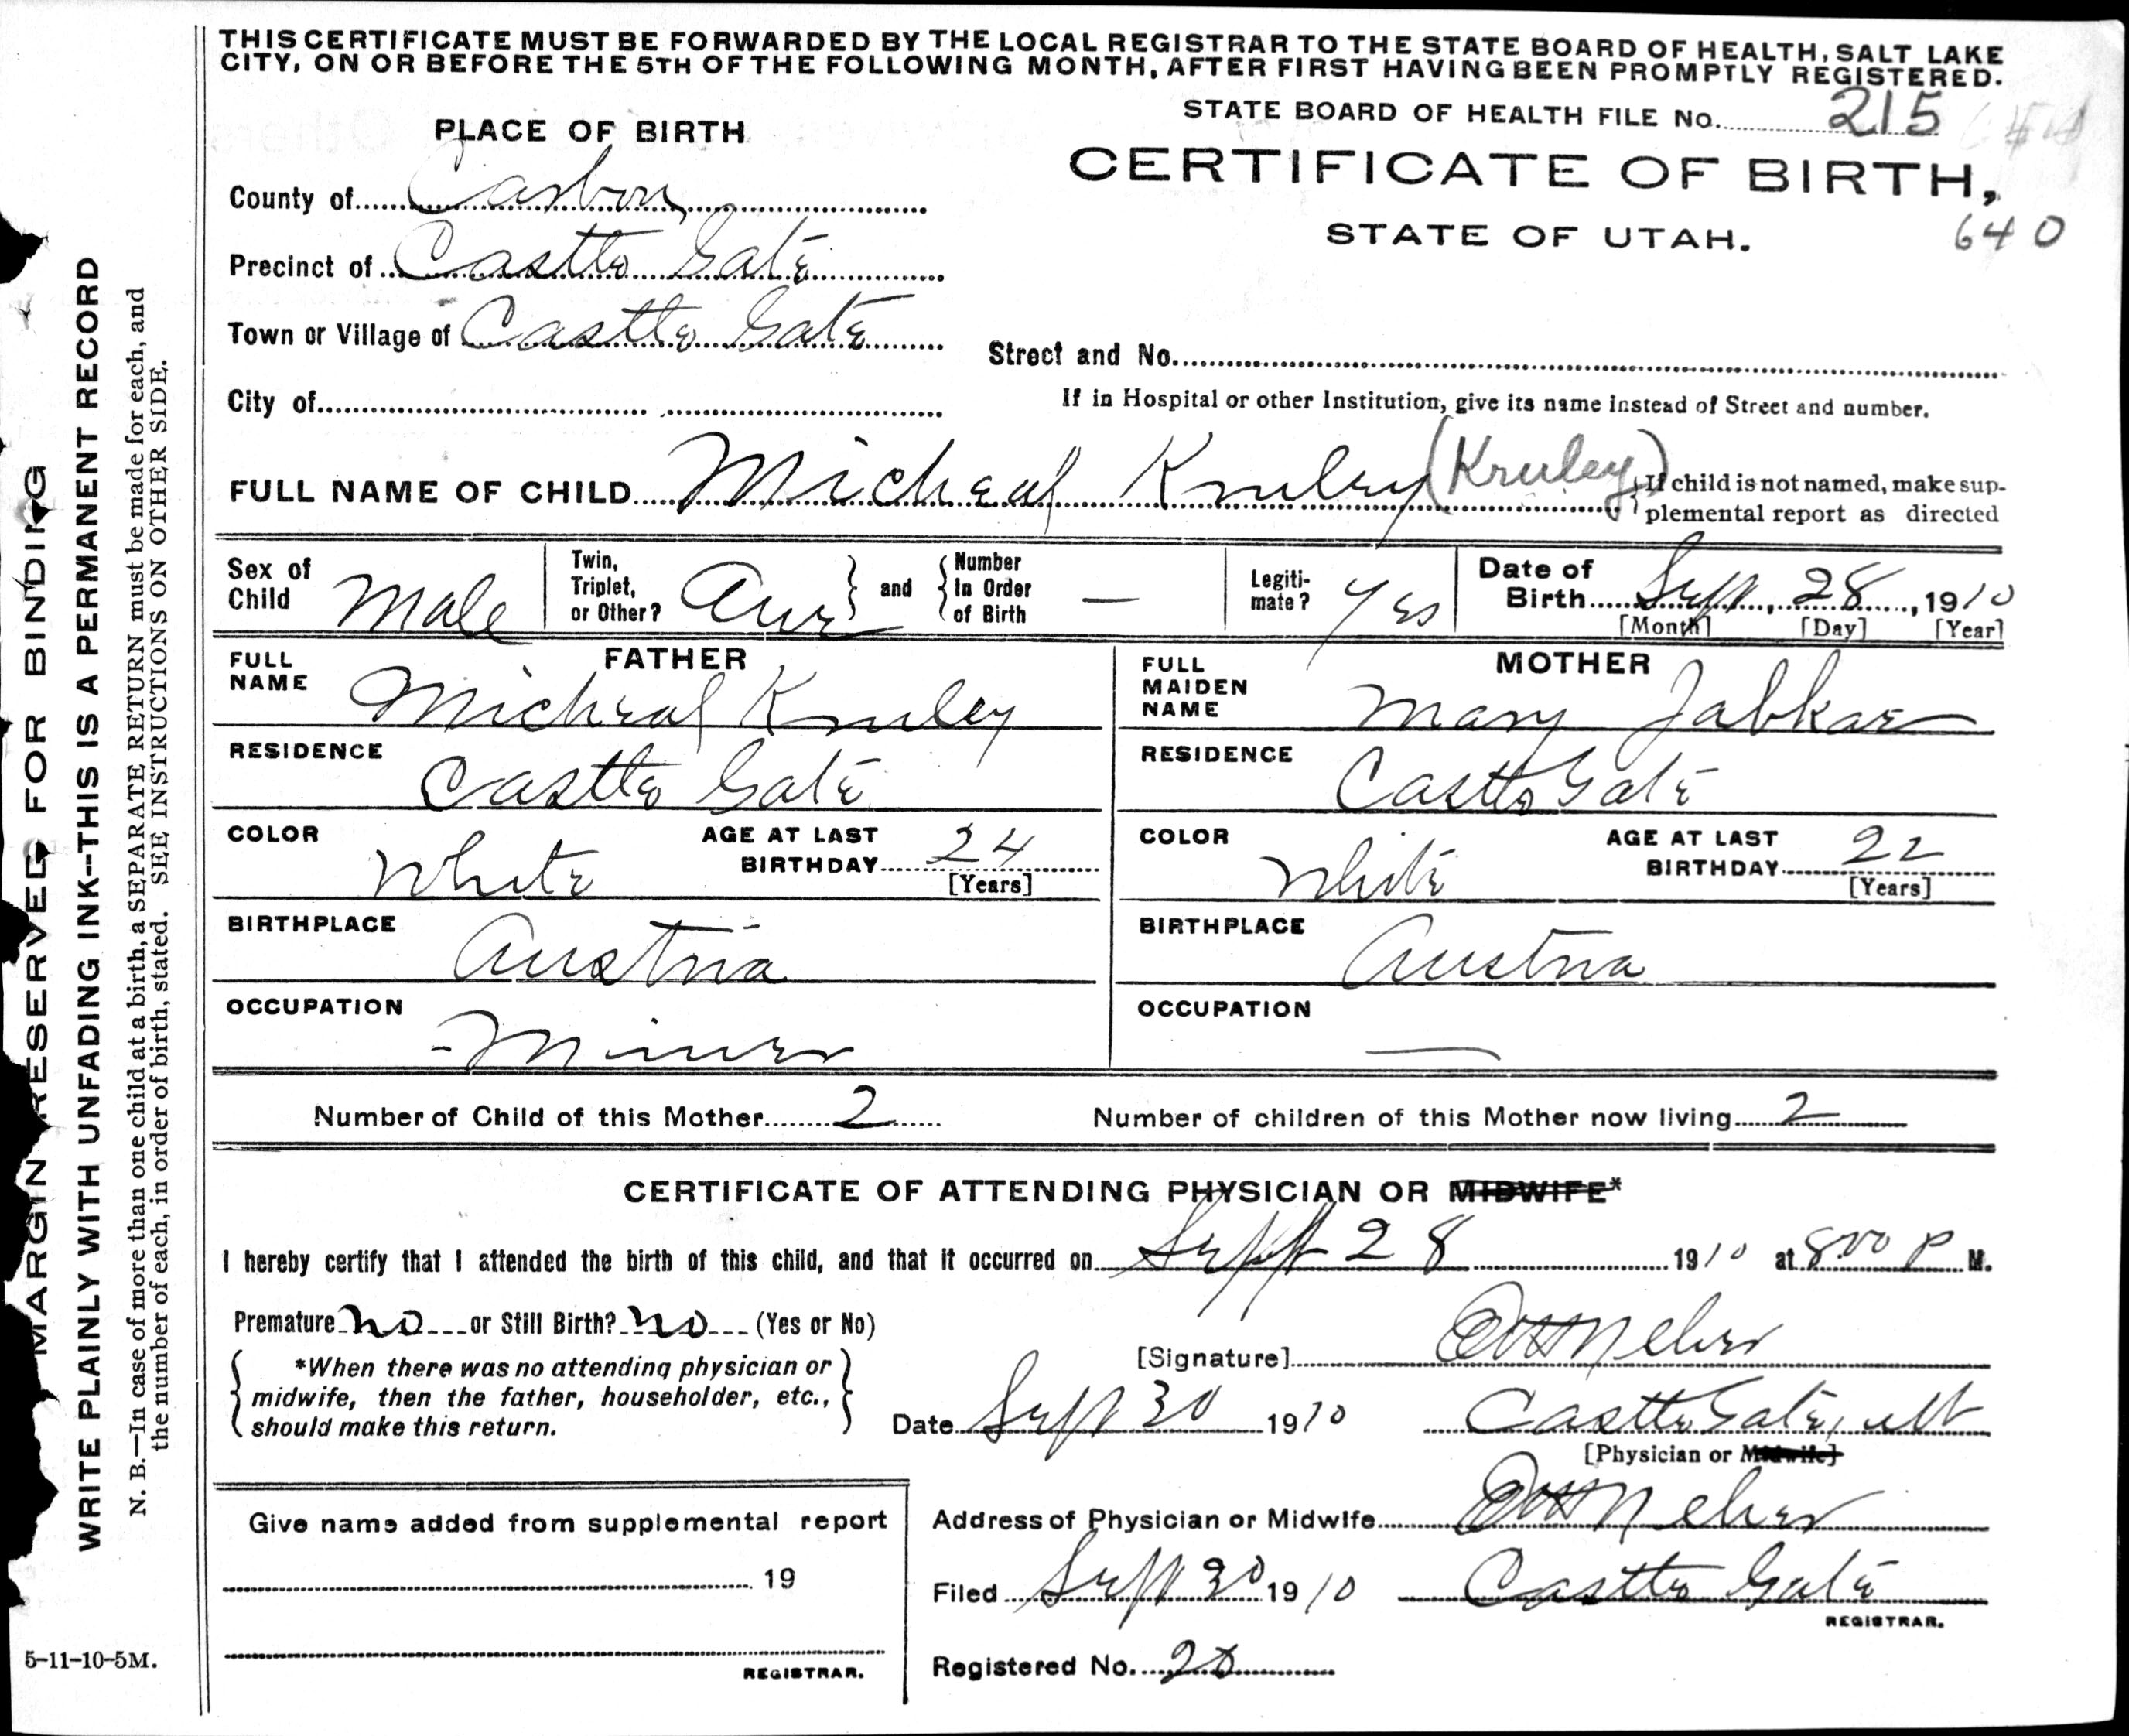 THIS CERTIFICATE MUST BE FORWARDED BY THE LOCAL REGISTRAR TO THE STATE BOARD OF HEALTH, SALT LAKE
CITY, ON OR BEFORE THE 5TH OF THE FOLLOWING MONTH, AFTER FIRST HAVING BEEN PROMPTLY REGISTERED.
STATE BOARD OF HEALTH FILE No. 215
PLACE OF BIRTH
CERTIFICATE OF BIRTH,
STATE OF UTAH.
640
County of Carbon
Precinct of Castle Gate
Town or Village of Castle Gate
Street and No.
City of
If in Hospital or other Institution, give its name instead of Street and number.
FULL NAME OF CHILD Micheal Kruley (Kruley)
If child is not named, make sup-
plemental report as directed
Sex of Child Male
Twin, Triplet, or Other?
and
Number In Order of Birth —
Legiti-mate? Yes
Date of Birth Sept, 28, 1910
[Month] [Day] [Year]
FATHER
FULL NAME Micheal Kruley
RESIDENCE Castle Gate
COLOR White
AGE AT LAST BIRTHDAY 24
[Years]
BIRTHPLACE Austria
OCCUPATION Miner
MOTHER
FULL MAIDEN NAME Mary
RESIDENCE Castle Gate
COLOR White
AGE AT LAST BIRTHDAY 22
[Years]
BIRTHPLACE Austria
OCCUPATION —
Number of Child of this Mother 2
Number of children of this Mother now living 2
CERTIFICATE OF ATTENDING PHYSICIAN OR MIDWIFE*
I hereby certify that I attended the birth of this child, and that it occurred on Sept 28 1910 at 8:00 P M.
Premature no or Still Birth? no (Yes or No)
*When there was no attending physician or
midwife, then the father, householder, etc.,
should make this return.
[Signature]
Date Sept 30 1910
Castle Gate, Ut
[Physician or Midwife]
Give name added from supplemental report
19
REGISTRAR.
Address of Physician or Midwife
Filed Sept 30 1910
Castle Gate
REGISTRAR.
Registered No.
MARGIN RESERVED FOR BINDING
WRITE PLAINLY WITH UNFADING INK--THIS IS A PERMANENT RECORD
N. B.—In case of more than one child at a birth, a SEPARATE RETURN must be made for each, and
the number of each, in order of birth, stated. SEE INSTRUCTIONS ON OTHER SIDE.
5-11-10-5M.